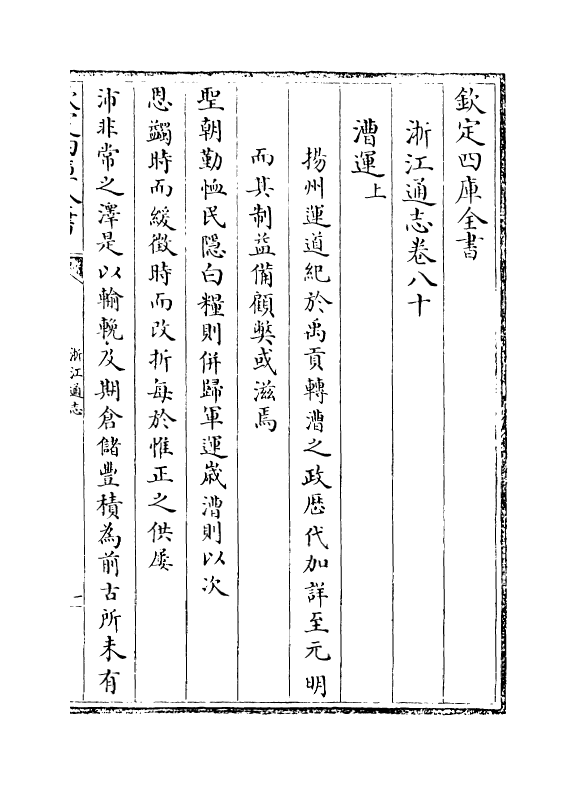 欽定四庫全書
浙江通志卷八十
漕運上
揚州運道紀於禹貢轉漕之政歴代加詳至元明
而其制益備顧弊或滋焉
聖朝勤恤民隱白糧則併歸軍運嵗漕則以次
恩蠲時而緩徵時而改折每於惟正之供屡
沛非常之澤是以輸輓及期倉儲豐積為前古所未有
浙江通志